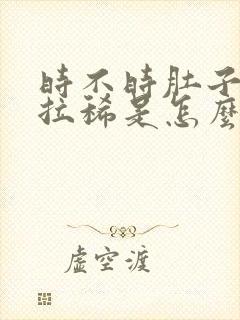 時不時肚子
拉稀是怎麼
虛空渡